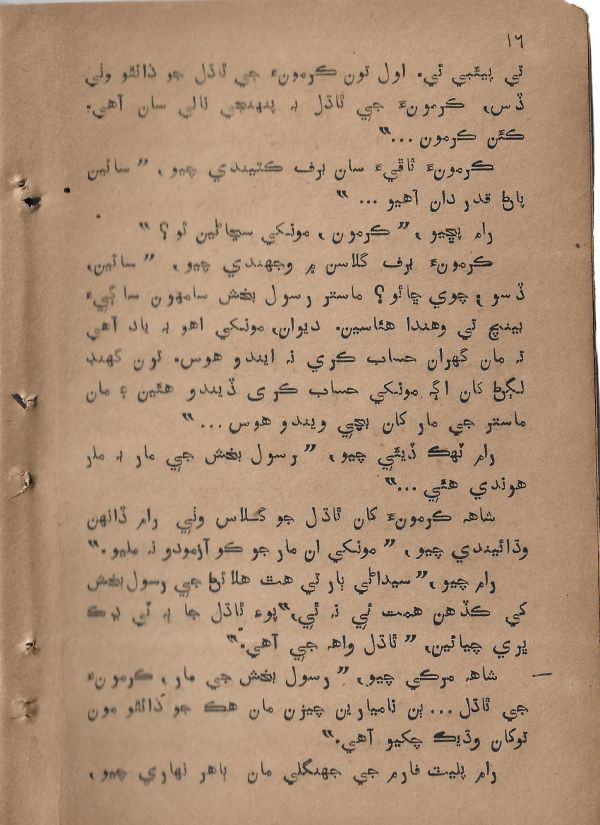 ١٦
تي بيٺيي ٿي. اول تون ڪرمونءَ جي ٿاڌل جو ذائقو وٺي
ڏس، ڪرمونءَ جي ٿاڌل به پنهنجي نالي سان آهي.
ڪئن ڪرمون..."
ڪرمونءَ ٿاڦيءَ سان برف ڪٽيندي چيو، "سائين
پاڻ قدردان آهيو ..."
رام پڇيو، "ڪرمون، مونکي سڃاڻين ٿو؟"
ڪرمونءَ برف گلاسن ۾ وجهندي چيو، "سائين،
ڏسو، چوي ڇاٿو؟ ماستر رسول بخش سامهون ساڳيءَ
بينچ تي وهندا هئاسين. ديوان، مونکي اهو به ياد آهي
ته مان گهران حساب ڪري نه ايندو هوس. تون گهنڊ
لڳڻ کان اڳ مونکي حساب ڪري ڏيندو هئين ۽ مان
ماستر جي مار کان بچي ويندو هوس..."
رام ٽهڪ ڏيئي چيو، "رسول بخش جي مار به مار
هوندي هئي..."
شاهه ڪرمونءَ کان ٿاڌل جو گلاس وٺي رام ڏانهن
وڌائيندي چيو، "مونکي ان مار جو ڪو آزمودو نه مليو."
رام چيو، "سيداڻي ٻار تي هٿ هلائڻ جي رسول بخش
کي ڪڏهن همت ئي نه ٿي،" پوءِ ٿاڌل جا ٻه ٽي ڍڪ
ڀري چيائين، "ٿاڌل واهه جي آهي."
شاهه مرڪي چيو، "رسول بخش جي مار، ڪرمونءَ
جي ٿاڌل... ٻن ناميارين چيزن مان هڪ جو ذائقو مون
توکان وڌيڪ چکيو آهي."
رام پليٽ فارم جي جهنگلي مان ٻاهر نهاري چيو،